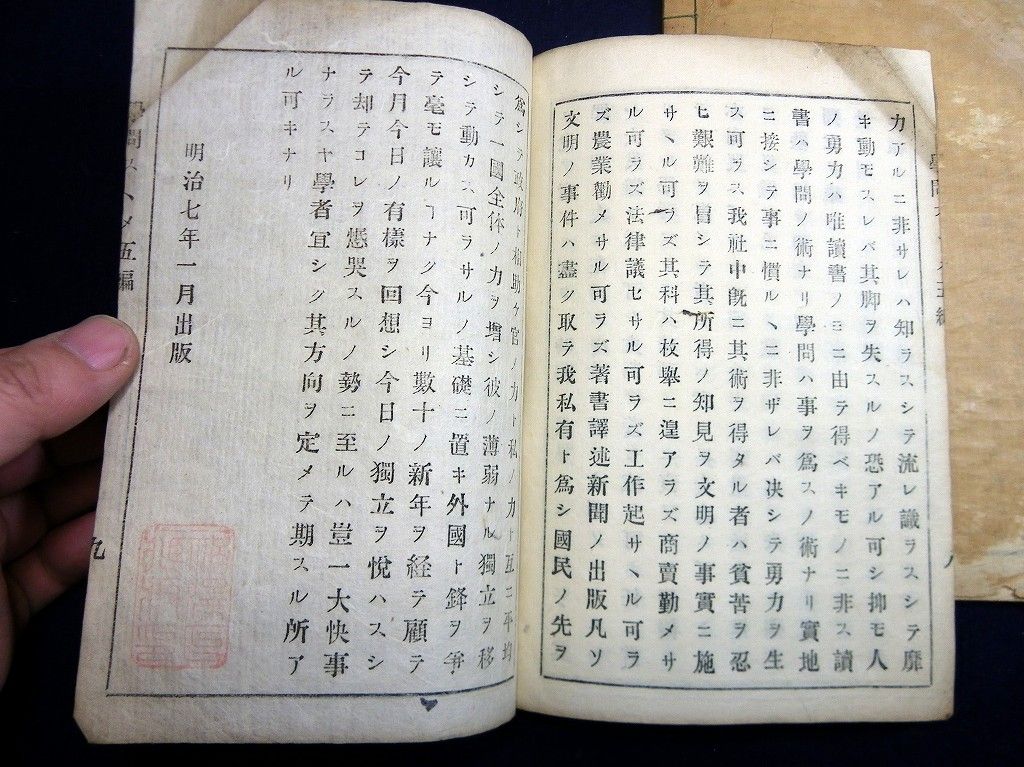 力アルニ非サレハ知ラスシテ流レ識ラスシテ靡
キ動モスレバ其脚ヲ失スルノ恐アル可シ抑モ人
ノ勇力ハ唯讀書ノミニ由テ得ベキモノニ非ス讀
書ハ學問ノ術ナリ學問ハ事ヲ爲スノ術ナリ實地
ニ接シテ事ニ慣ルヽニ非ザレバ决シテ勇力ヲ生
ス可ラス我社中旣ニ其術ヲ得タル者ハ貧苦ヲ忍
ヒ艱難ヲ冒シテ其所得ノ知見ヲ文明ノ事實ニ施
サヽル可ラズ其科ハ枚擧ニ遑アラズ商賣勤メサ
ル可ラズ法律議セサル可ラズ工作起サヽル可ラ
ズ農業勸メサル可ラズ著書譯述新聞ノ出版凡ソ
文明ノ事件ハ盡ク取テ我私有ト爲シ國民ノ先ヲ
爲シテ政府ト相助ケ官ノ力ト私ノ力ト互ニ平均
シテ一國全体ノ力ヲ增シ彼ノ薄弱ナル獨立ヲ移
シテ動カス可ラサルノ基礎ニ置キ外國ト鋒ヲ爭
テ毫モ讓ルヿナク今ヨリ數十ノ新年ヲ経テ顧テ
今月今日ノ有樣ヲ回想シ今日ノ獨立ヲ悅ハスシ
テ却テコレヲ愍哭スルノ勢ニ至ルハ豈一大快事
ナラスヤ學者宜シク其方向ヲ定メテ期スル所ア
ル可キナリ
明治七年一月出版
問スヽメ五編
九